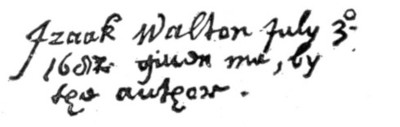 Izaak Walton July 3º
1682 giuen me, by
the author.